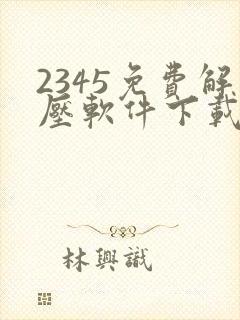 2345免費解
壓軟件下載
林興識